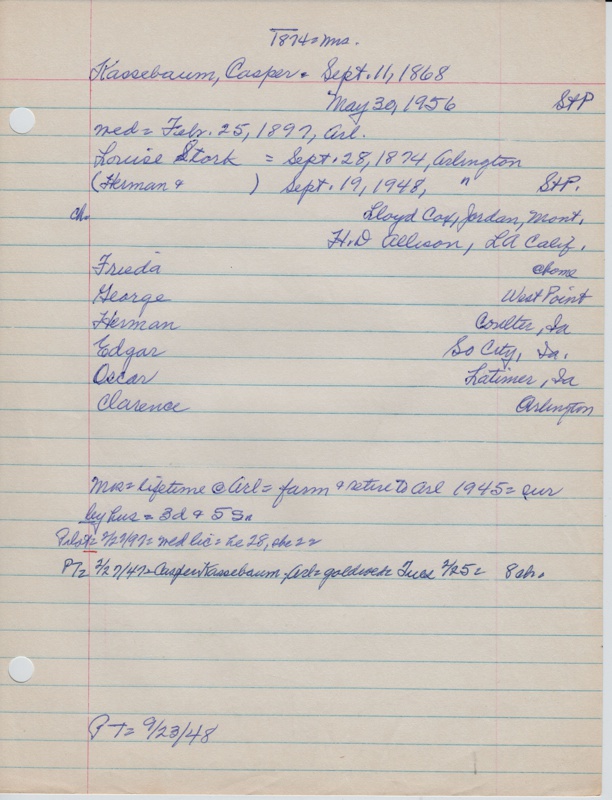 1874 = Mrs.
Kassebaum, Casper = Sept. 11, 1868
May 30, 1956 StP
med = Febr. 25, 1897, Arl.
Louise Stork = Sept. 28, 1874, Arlington
(Herman & ) Sept. 19, 1948, " StP.
ch. Lloyd Cox, Jordan, Mont.
H.D Allison, LA Calif.
Frieda @home
George West Point
Herman Coulter, Ia
Edgar So City, Ia.
Oscar Latimer, Ia
Clarence Arlington
Mrs = lifetime @ Arl = farm & retire to Arl 1945 = sur
by hus = 3d & 5 Sn
Pilot = 2/27/97 = med lic = he 28, she 22
PT = 2/27/47 = Casper Kassebaum, Arl = goldwed = Tues 2/25 = 8 ch.
PT = 9/23/48